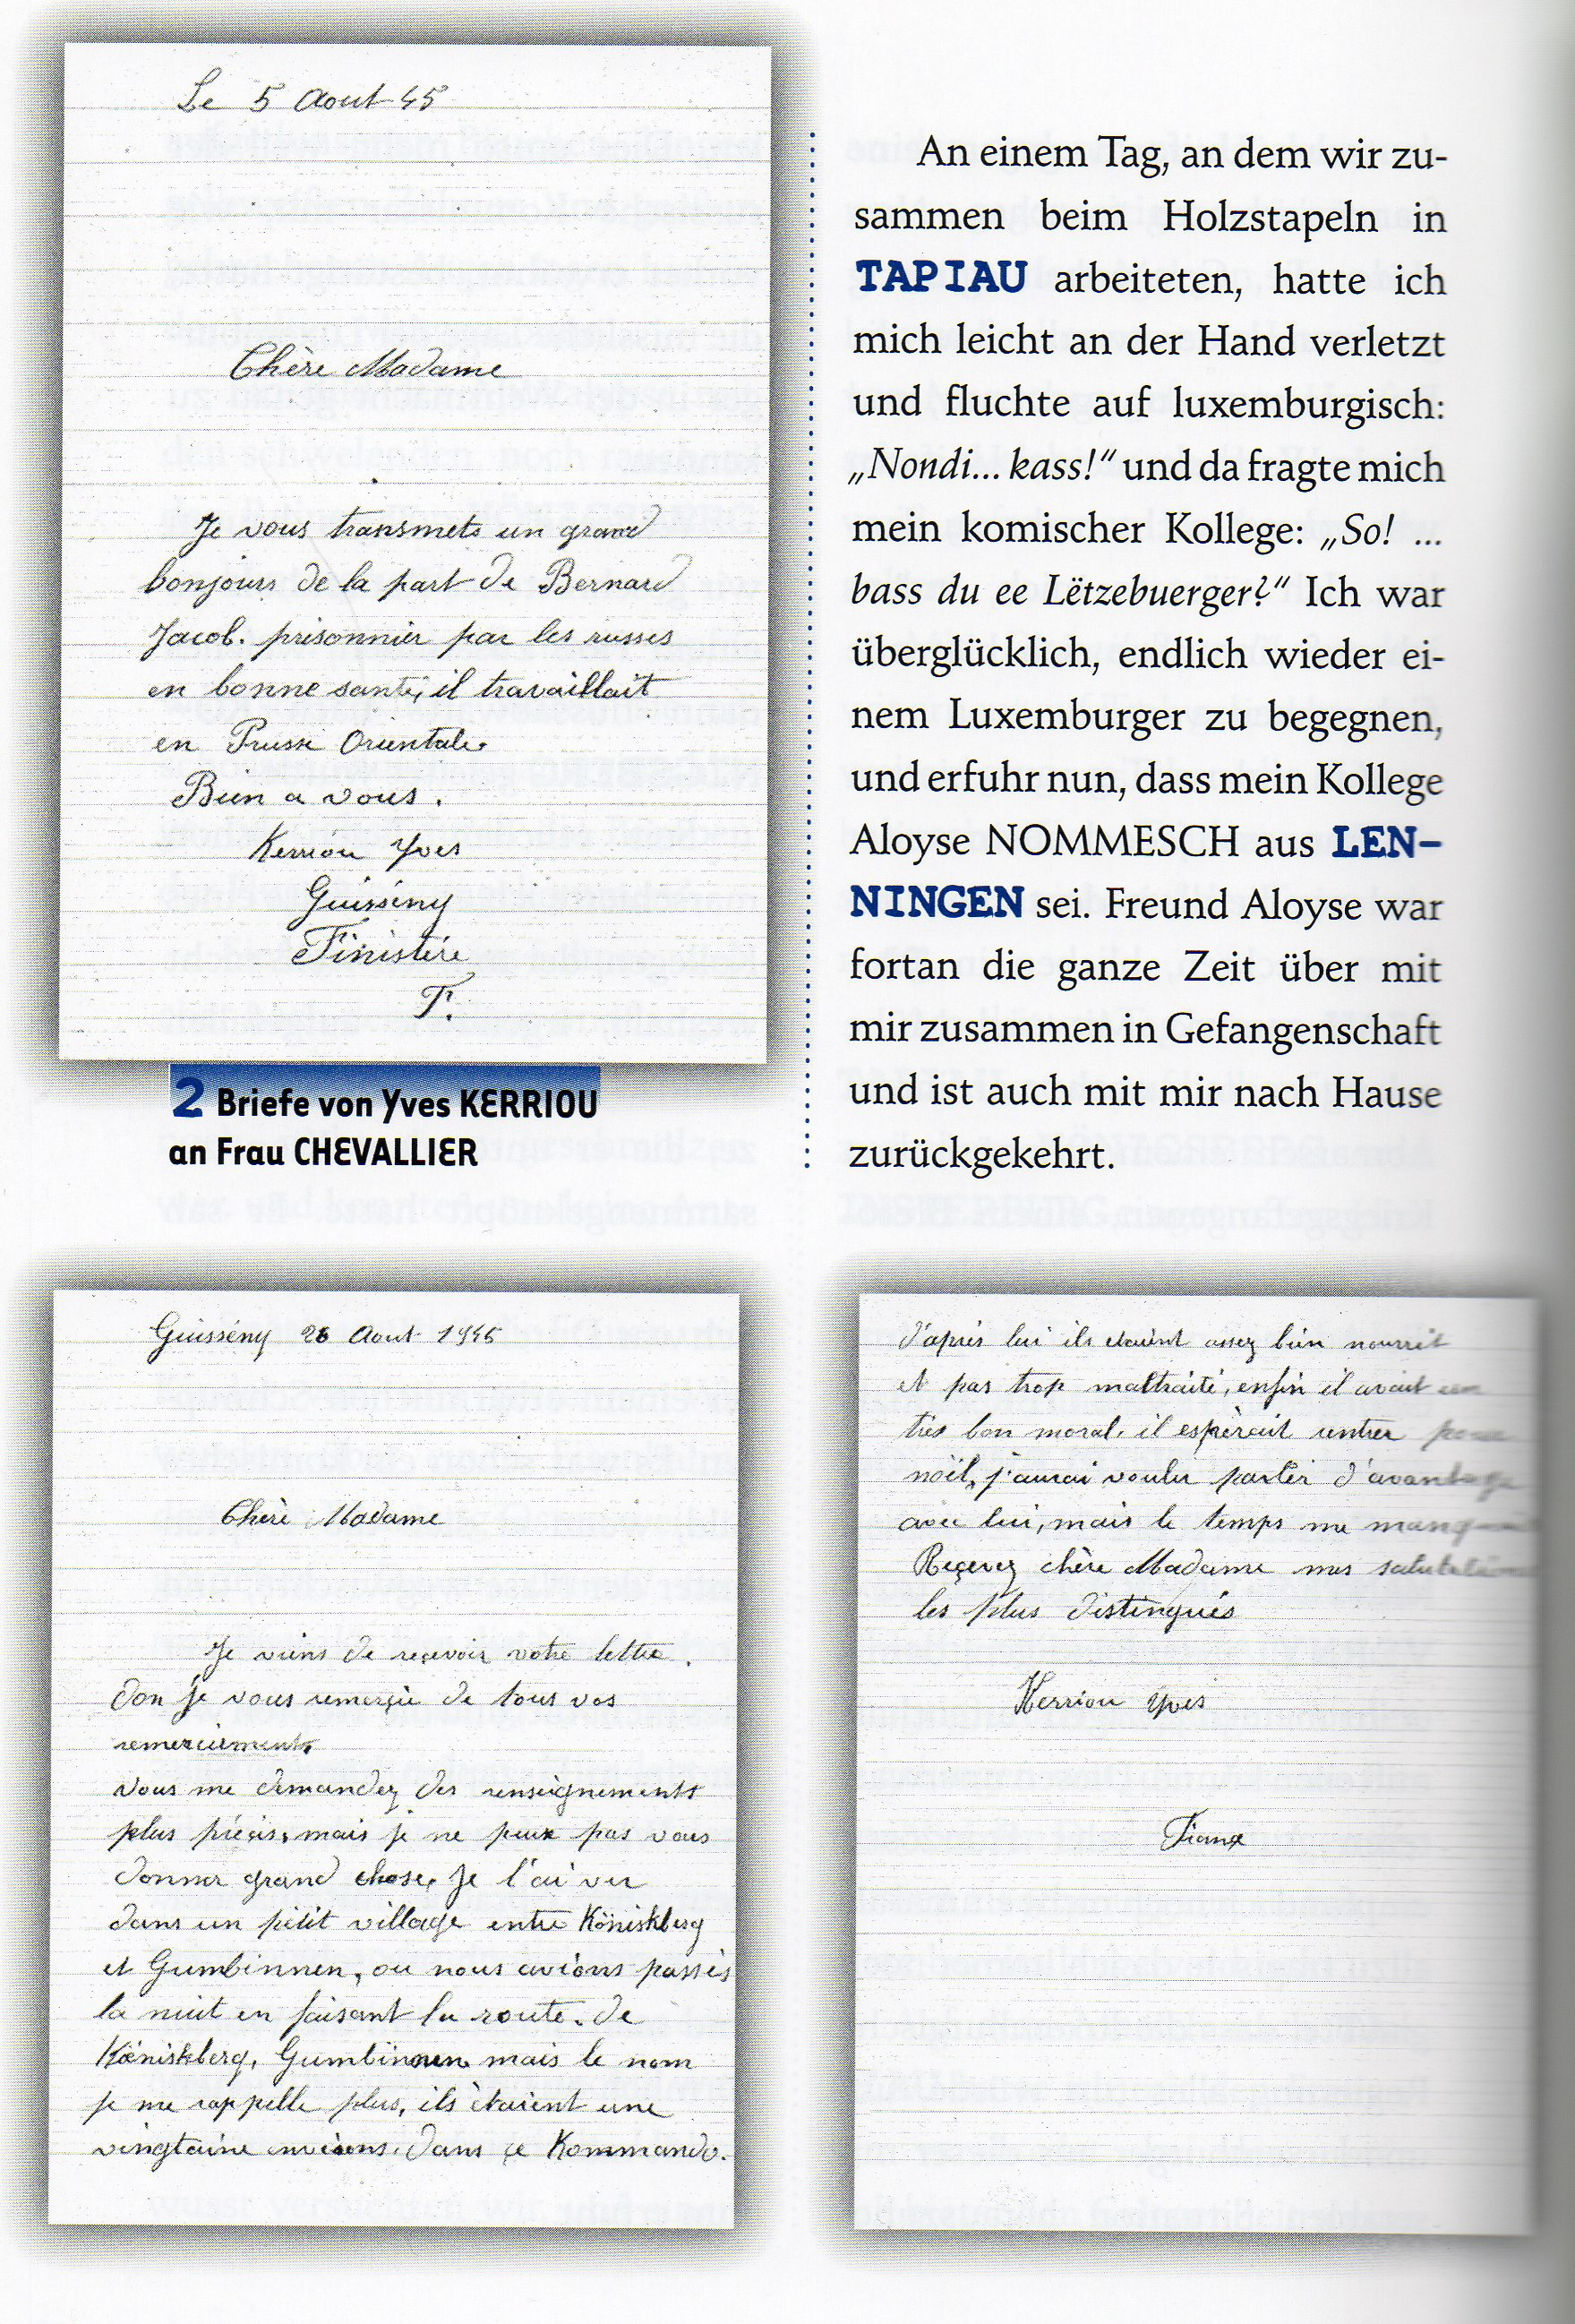 Le 5 Aout 45
Chère Madame
Je vous transmets un grand
bonjours de la part de Bernard
Jacob. prisonnier par les russes
en bonne santé, il travaillait
en Prusse Orientale.
Bien a vous.
Kerriou Yves
Guissény
Finistère
F.
2 Briefe von Yves KERRIOU
an Frau CHEVALLIER
An einem Tag, an dem wir zu-
sammen beim Holzstapeln in
TAPIAU arbeiteten, hatte ich
mich leicht an der Hand verletzt
und fluchte auf luxemburgisch:
„Nondi... kass!“ und da fragte mich
mein komischer Kollege: „So! ...
bass du ee Lëtzebuerger?“ Ich war
überglücklich, endlich wieder ei-
nem Luxemburger zu begegnen,
und erfuhr nun, dass mein Kollege
Aloyse NOMMESCH aus LEN-
NINGEN sei. Freund Aloyse war
fortan die ganze Zeit über mit
mir zusammen in Gefangenschaft
und ist auch mit mir nach Hause
zurückgekehrt.
Guissény 26 Aout 1945
Chère Madame
Je viens de reçevoir votre lettre.
don je vous remerçie de tous vos
remerciements.
Vous me demandez des renseignements
plus précis, mais je ne peux pas vous
donner grand chose, Je l'ai vu
dans un petit village entre Köniskberg
et Gumbinnen, ou nous avions passés
la nuit en faisant la route. de
Köniskberg, Gumbinnen mais le nom
je me rappelle plus, ils étaient une
vingtaine environs. dans çe Kommando.
d'après lui ils étaient assez bien nourrit
et pas trop maltraité, enfin il avait un
très bon moral, il espèrait rentrer pour
noël, j'aurai voulu parler d'avantage
avec lui, mais le temps me
Reçevez chère Madame mes salutations
les plus distingués
Kerriou Yves